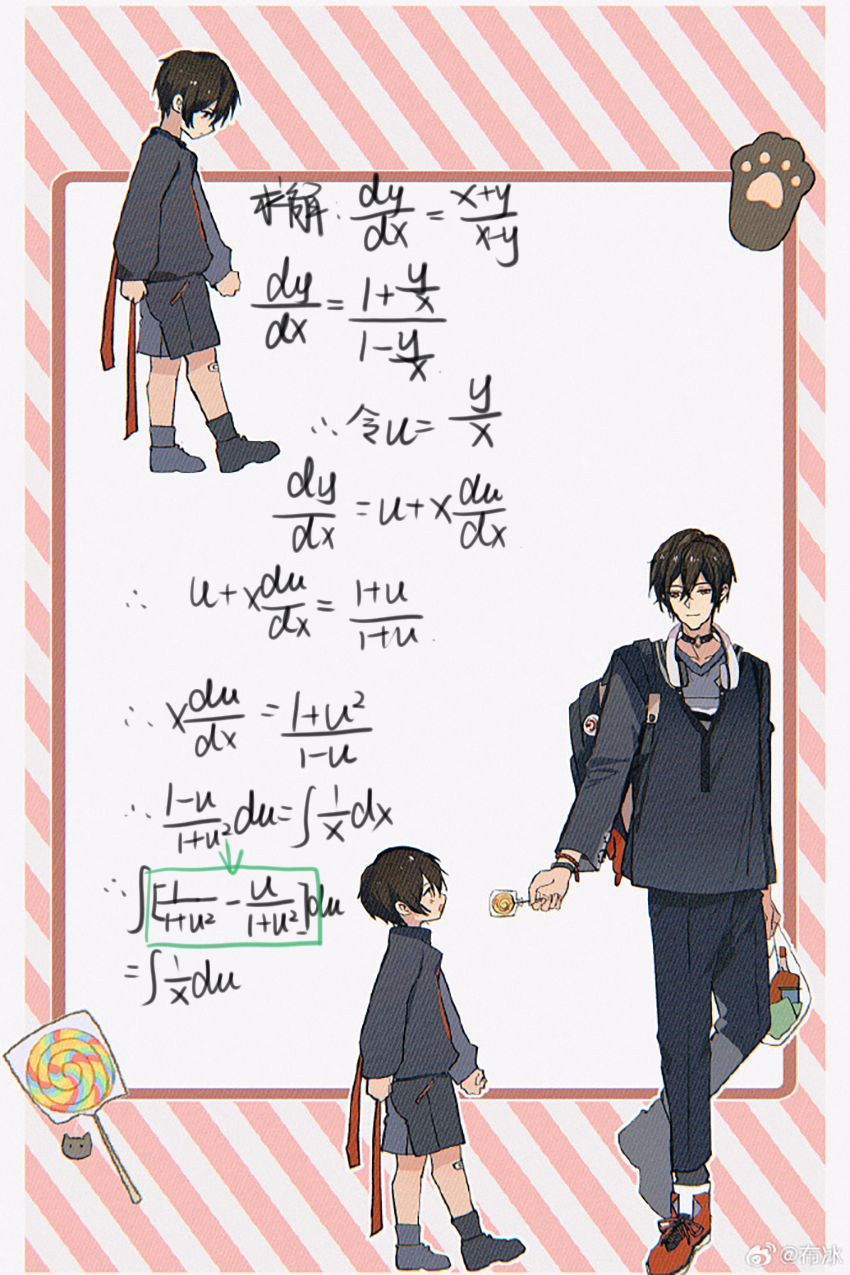 求解: dy/dx = x+y/x-y
dy/dx = 1+y/x / 1-y/x
∴ 令u= y/x
dy/dx = u+x du/dx
∴ u+x du/dx = 1+u/1+u
∴ x du/dx = 1+u²/1-u
∴ 1-u/1+u² du = ∫ 1/x dx
∴ ∫[1/1+u² - u/1+u²]du
= ∫ 1/x du
@布冰